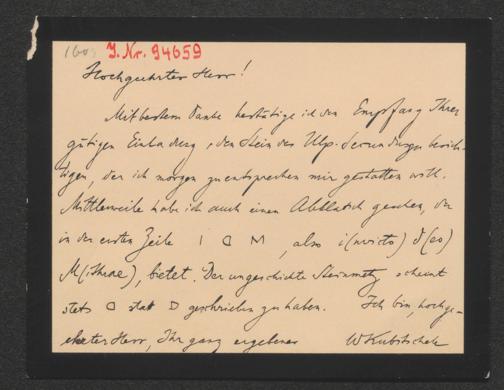 160. J. Nr. 94659
Hochgeehrter Herr!
Mit bestem Danke bestätige ich den Empfang Ihrer
gütigen Einladung, den Stein des Ulp. Secundinus besich-
tigen, der ich morgen zu entsprechen mir gestatten will.
Mittlerweile habe ich auch einen Abklatsch gesehen, der
in der ersten Zeile I D M, also i(nvicto) d(eo)
M(ithrae), bietet. Der ungeschickte Steinmetz scheint
stets D statt D geschrieben zu haben. Ich bin, hochge-
ehrter Herr, Ihr ganz ergebener WKubitschek